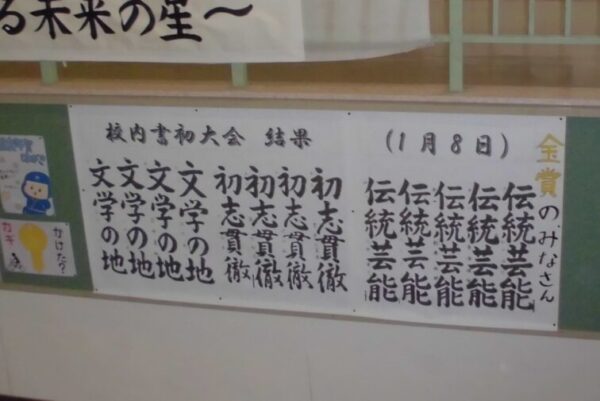 る未来の星～
校内書初大会 結果
(1月8日)
金賞のみなさん
伝統芸能
伝統芸能
伝統芸能
伝統芸能
伝統芸能
初志貫徹
初志貫徹
初志貫徹
初志貫徹
文学の地
文学の地
文学の地
文学の地
カギ
かけた?